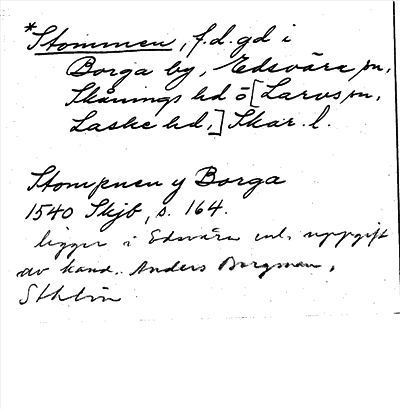 *Stommen, f.d. gd i
Borga by, Edsvära sn,
Skånings hd ö [Larvs sn,
Laske hd,] Skar. l.
Stompnen y Borga
1540 Skjb, s. 164.
ligger i Edsvära enl. uppgift
av kand. Anders Borgman,
Sthlm